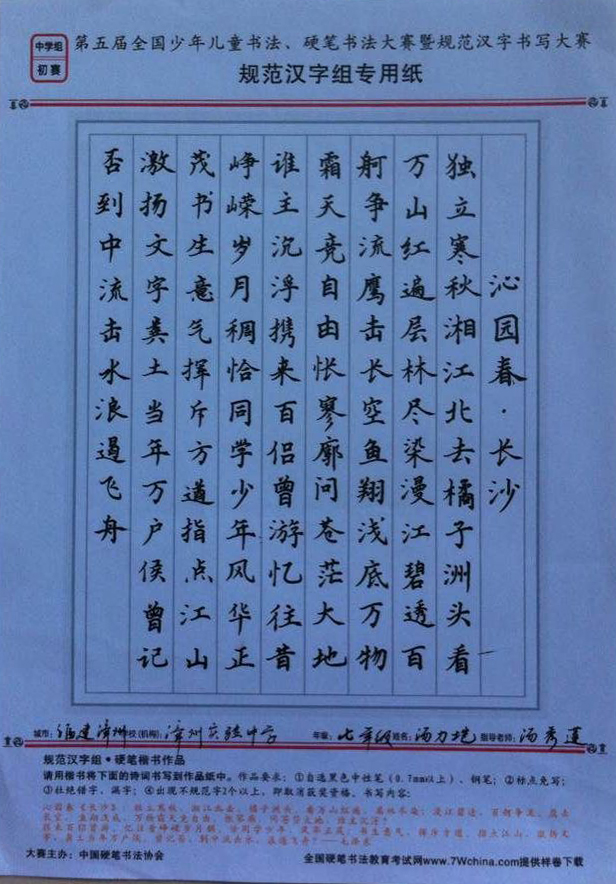 中学组
初赛
第五届全国少年儿童书法、硬笔书法大赛暨规范汉字书写大赛
规范汉字组专用纸
沁园春·长沙
独立寒秋湘江北去橘子洲头看
万山红遍层林尽染漫江碧透百
舸争流鹰击长空鱼翔浅底万物
霜天竞自由怅寥廓问苍茫大地
谁主沉浮携来百侣曾游忆往昔
峥嵘岁月稠恰同学少年风华正
茂书生意气挥斥方遒指点江山
激扬文字粪土当年万户侯曾记
否到中流击水浪遏飞舟
城市：福建漳州 学校(机构)：漳州实验中学 年级：七年级 姓名：汤力 指导老师：汤秀莲
规范汉字组·硬笔楷书作品
请用楷书将下面的诗词书写到作品纸中。作品要求：①自选黑色中性笔（0.7mm以上）、钢笔；②标点免写；
③杜绝错字、漏字；④出现不规范字2个以上，即取消获奖资格。书写内容：
大赛主办：中国硬笔书法协会 全国硬笔书法教育考试网www.7Wchina.com提供样卷下载